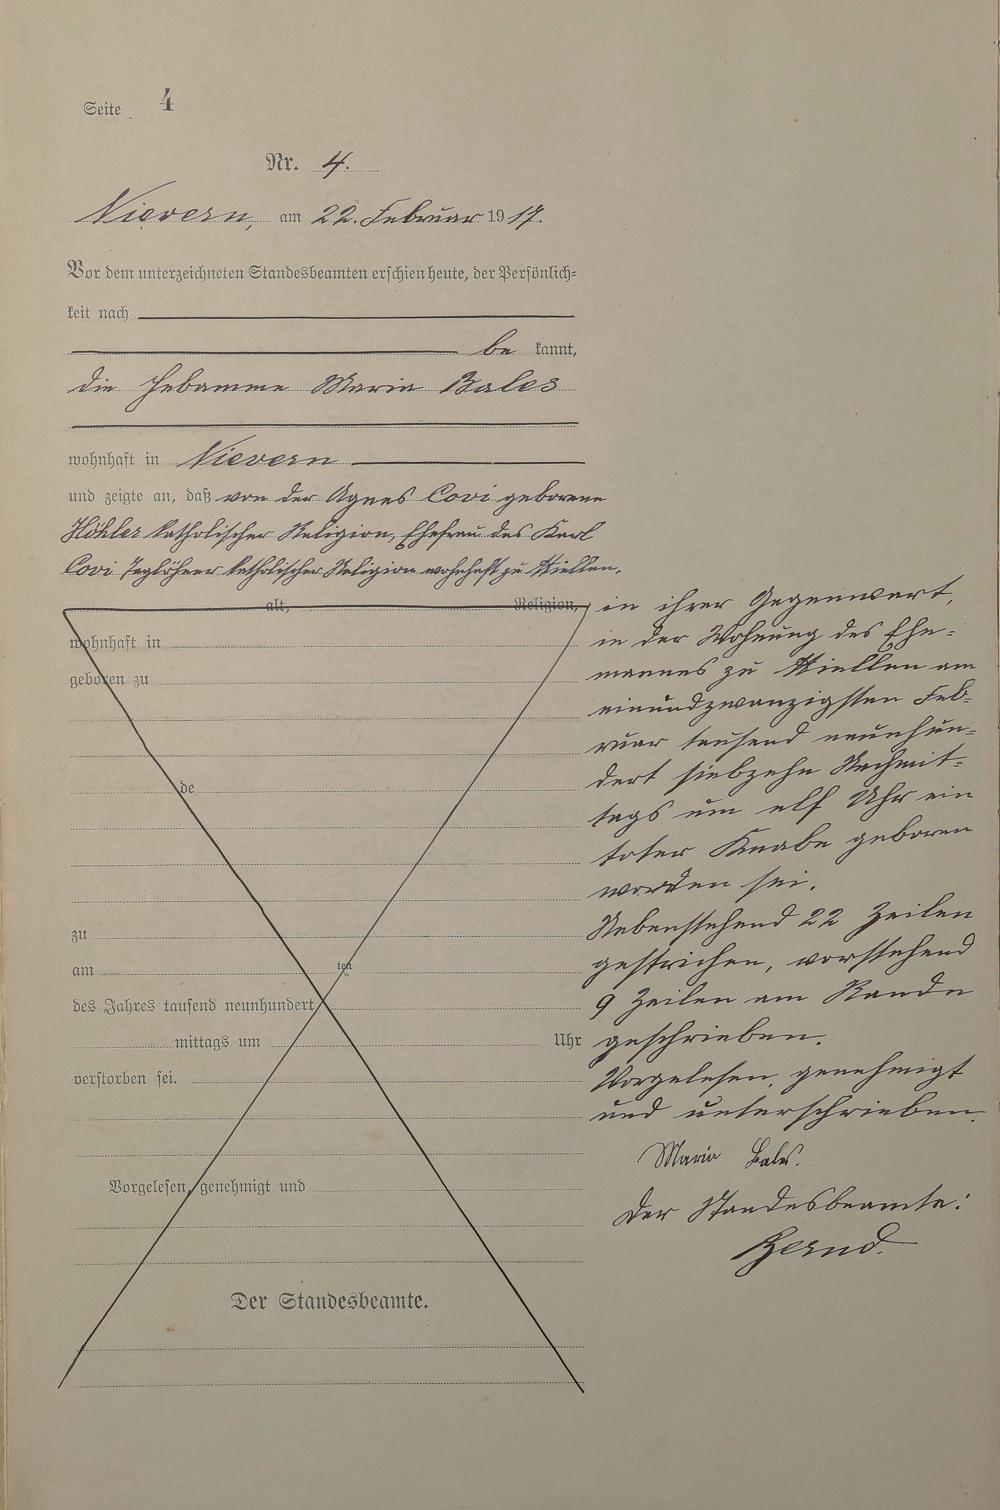 Seite 4
Nr. 4.
Nievern, am 22. Februar 1917.
Vor dem unterzeichneten Standesbeamten erschien heute, der Persönlich-
keit nach
be kannt,
die Hebamme Maria Bales
wohnhaft in Nievern
und zeigte an, daß von der Agnes Covi geborene
Höhler katholischer Religion, Ehefrau des Karl
Covi Taglöhner katholischer Religion wohnhaft zu Miellen,
alt, Religion,
wohnhaft in
geboren zu
de
zu
am ten
des Jahres tausend neunhundert
mittags um Uhr
verstorben sei.
Vorgelesen, genehmigt und
Der Standesbeamte.
in ihrer Gegenwart,
in der Wohnung des Ehe-
mannes zu Miellen am
einundzwanzigsten Feb-
ruar tausend neunhun-
dert siebzehn Nachmit-
tags um elf Uhr ein
toter Knabe geboren
worden sei.
Nebenstehend 22 Zeilen
gestrichen, vorstehend
9 Zeilen am Rande
geschrieben.
Vorgelesen, genehmigt
und unterschrieben.
Maria Bales.
Der Standesbeamte:
Bernd.